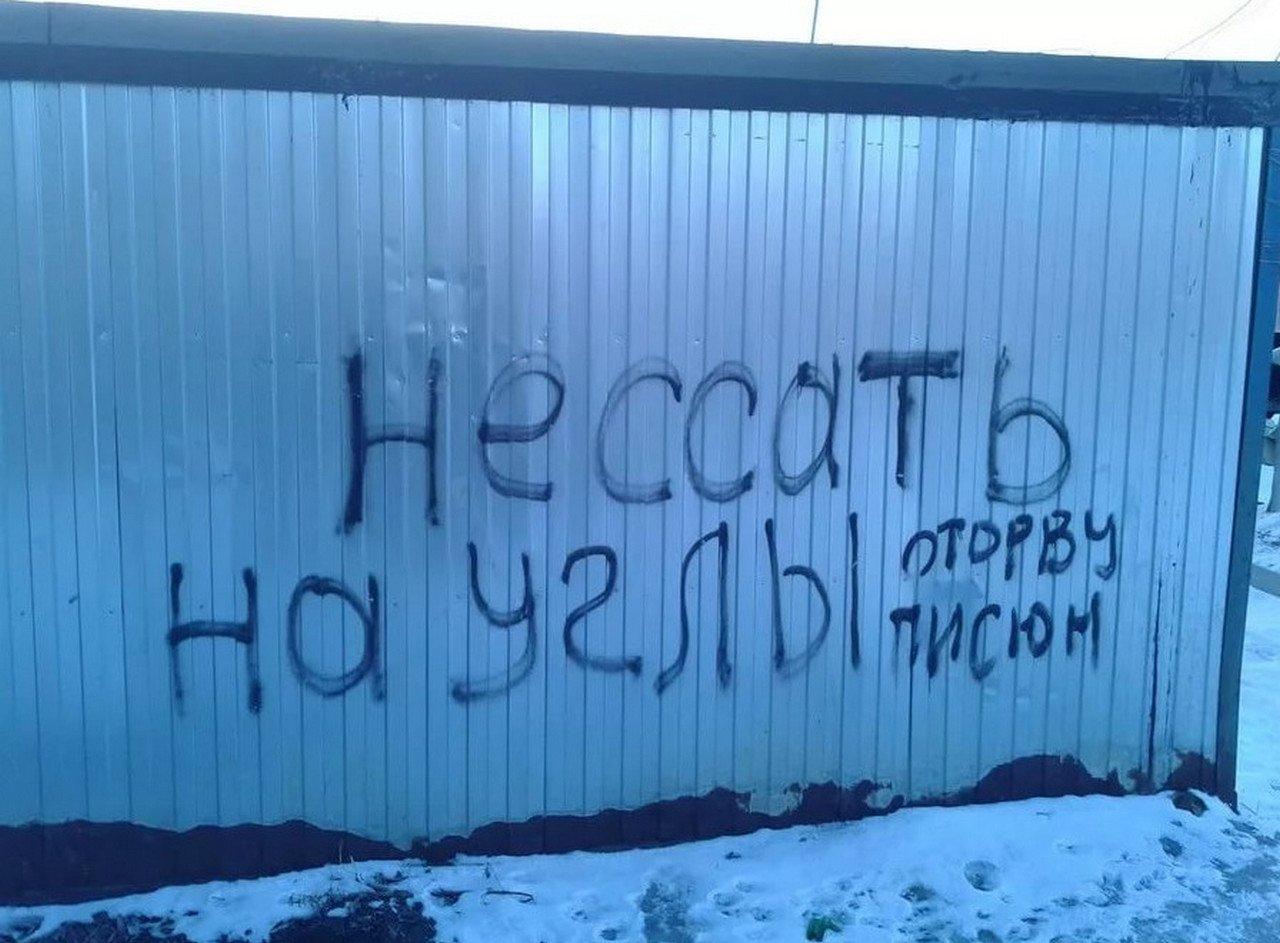 нессать
на углы оторву
писюн